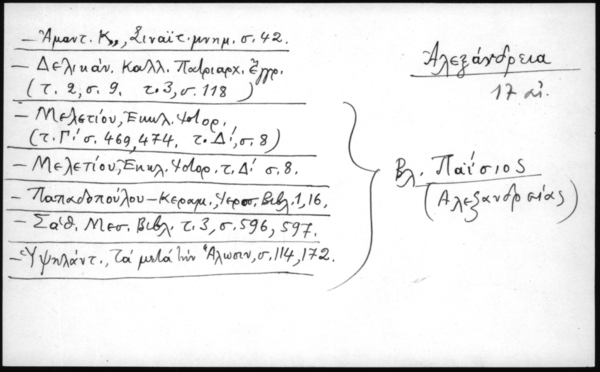 — Ἀμαντ. Κ,,, Σιναϊτ. μνημ. σ. 42.
— Δελικάν. Καλλ. Πατριαρχ. ἔγγρ.
(τ. 2, σ. 9. τ. 3, σ. 118 )
— Μελετίου, Ἐκκλ. Ἱστορ.
(τ. Γ΄ σ. 469, 474. τ. Δ΄, σ. 8)
— Μελετίου, Ἐκκλ. Ἱστορ. τ. Δ΄ σ. 8.
— Παπαδοπούλου – Κεραμ., Ἱεροσ. Βιβλ. 1, 16.
— Σάθ. Μεσ. Βιβλ. τ. 3, σ. 596, 597.
— Ὑψηλάντ., Τά μετά τήν Ἅλωσιν, σ. 114, 172.
Ἀλεξάνδρεια
17 αἰ.
Βλ. Παΐσιος
(Ἀλεξανδρείας)